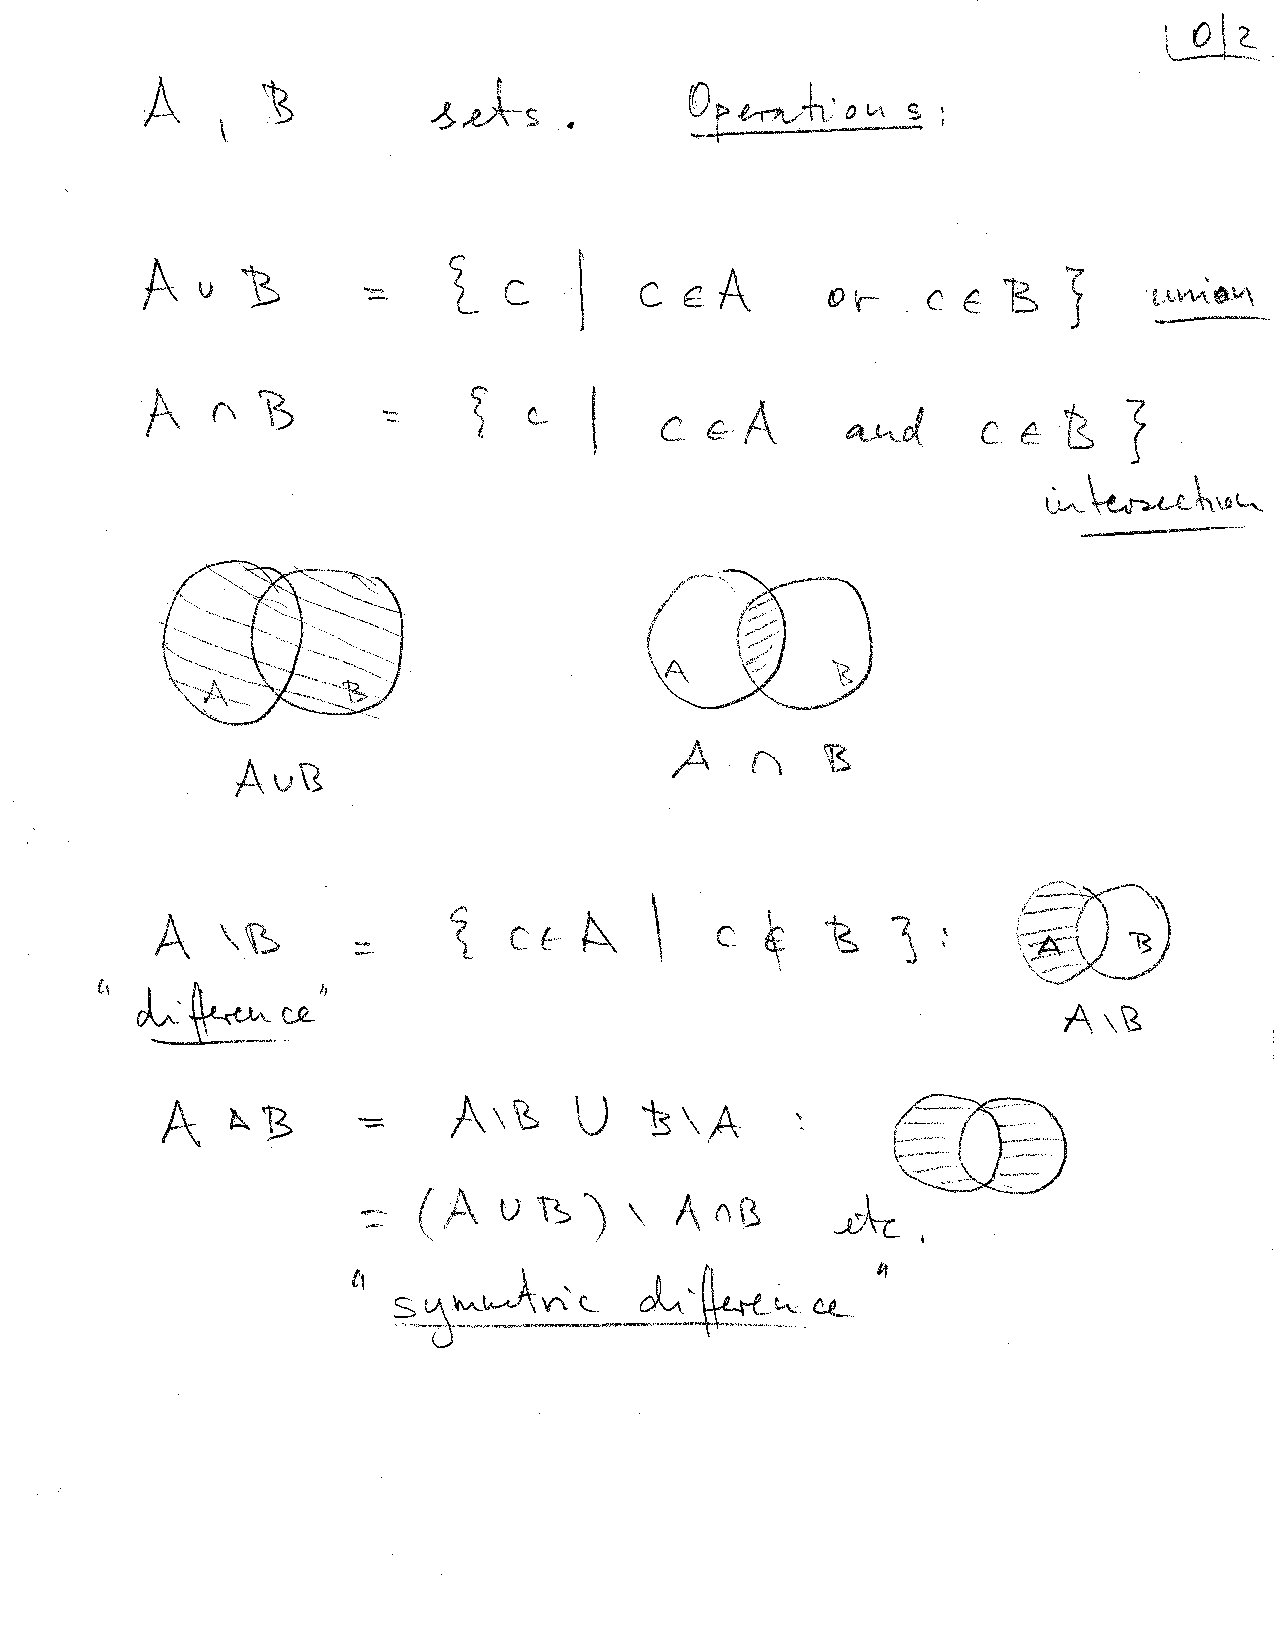 0/2
A, B sets. Operations:
A ∪ B = { c | c ∈ A or c ∈ B } union
A ∩ B = { c | c ∈ A and c ∈ B }
intersection
A B A B
A ∪ B A ∩ B
A \ B = { c ∈ A | c ∉ B } : A B
"difference" A \ B
A Δ B = A \ B ∪ B \ A :
= (A ∪ B) \ A ∩ B etc.
"symmetric difference"